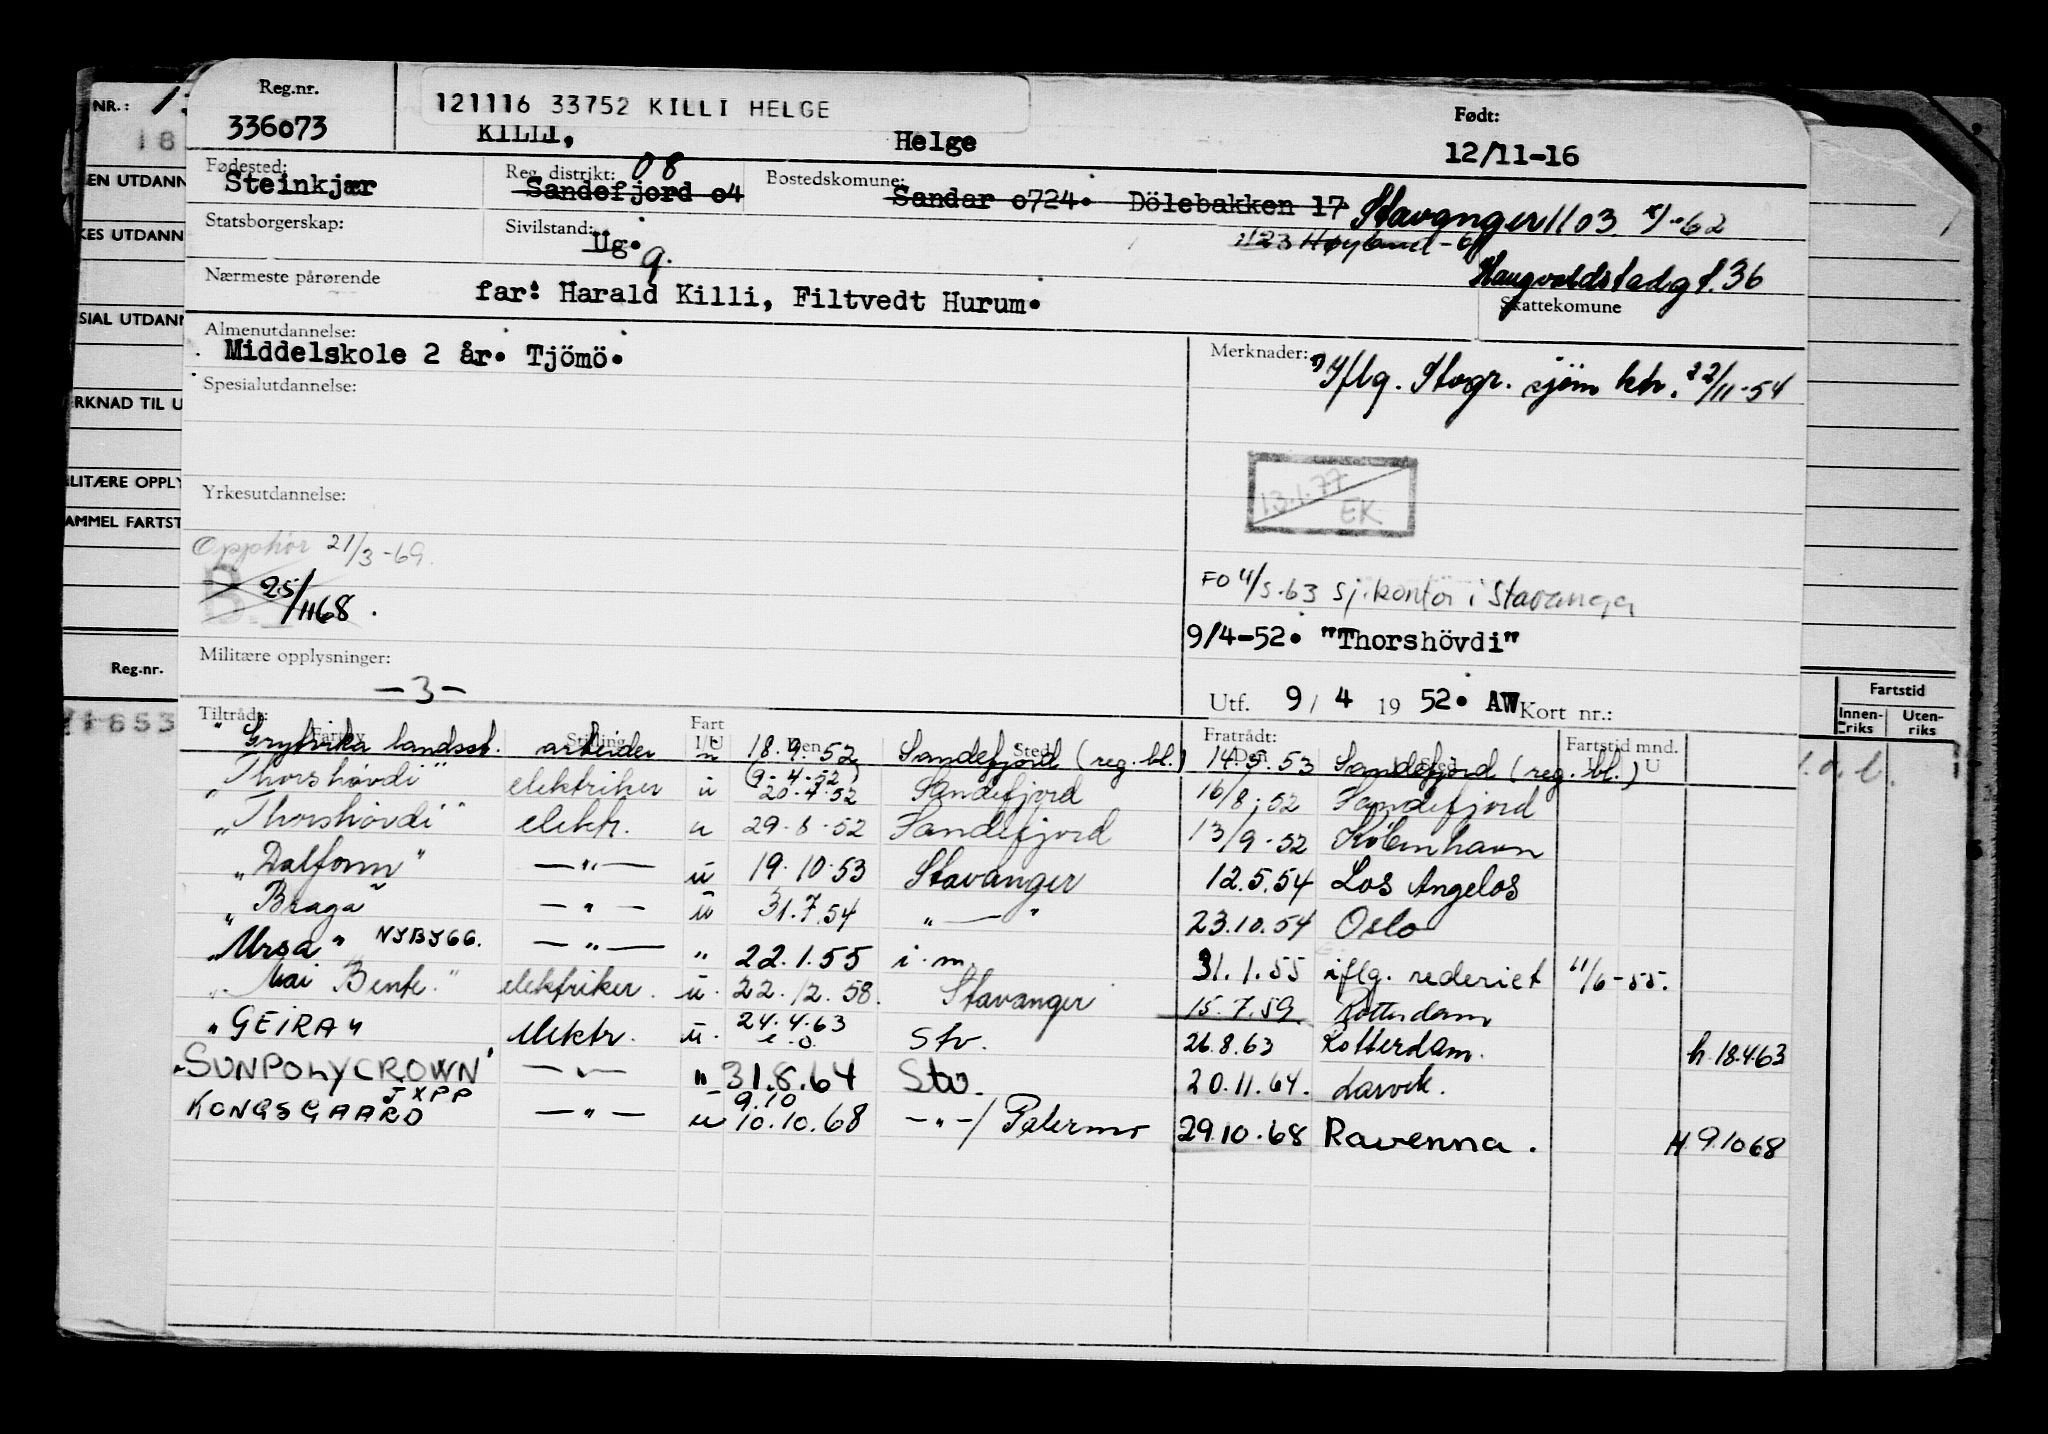 Reg.nr.
121116 33752 KILLI HELGE
Født:
336073
KILLI,
Helge
12/11-16
Fødested:
Steinkjær
Reg. distrikt: 08
Sandefjord o4
Bostedskomune:
Sandar o724. Dölebakken 17 Stavanger 1103
Statsborgerskap:
Sivilstand:
Ug.
g.
1123 Høyland
Nærmeste pårørende
far: Harald Killi, Filtvedt Hurum.
Skattekomune
Almenutdannelse:
Middelskole 2 år. Tjömö.
Merknader:
Iflg. Stvgr. sjøm ktr. 22/11-54
Spesialutdannelse:
13.1.77
EK
Yrkesutdannelse:
Opphør 21/3-69.
25/11 68.
FO 4/5-63 sj.kontor i Stavanger
9/4-52. "Thorshövdi"
Militære opplysninger:
-3-
Utf. 9/ 4 19 52. AW Kort nr.:
Tiltrådt:
Fartøy
Stilling
Fart
I/U
Den
Sted
Fratrådt:
Den
Sted
Fartstid mnd.
I U
"Grytvika landsst. arbeider u 18.9.52 Sandefjord (reg. bl.) 14.5.53 Sandefjord (reg. bl.)
"Thorshövdi" elektriker u (9-4-52) 20-4-52 Sandefjord 16/8-52 Sandefjord
"Thorshövdi" elektr. u 29-8-52 Sandefjord 13/9-52 København
"Dalfonn" —"— u 19.10.53 Stavanger 12.5.54 Los Angelos
"Braga" —"— u 31.7.54 "—" 23.10.54 Oslo
"Ursa" —"— " 22.1.55 i.m. 31.1.55 iflg. rederiet 11/6-55.
"Mai Bente" elektriker. u. 22.12.58. Stavanger 15.7.59 Rotterdam
"GEIRA" elektr. u. 24.4.63 Stv. 26.8.63 Rotterdam. h.18.4.63
"SUNPOLYCROWN" —"— " 31.8.64 Stv. 20.11.64. Larvik.
KONGSGAARD JXPP —"— u 9.10 10.10.68 -"-/ Palermo 29.10.68 Ravenna. H 9.10 68
NR.:
EN UTDANN
KES UTDANN
SIAL UTDANN
ERKNAD TIL U
LITÆRE OPPLY
AMMEL FARTST
Reg.nr.
Fartstid
Innen-
riks
Uten-
riks